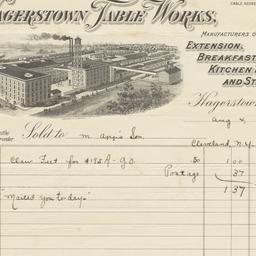 CABLE ADDRE
AGERSTOWN TABLE WORKS,
MANUFACTURERS O
EXTENSION,
BREAKFAST
KITCHEN
AND ST
Hagerstow
Aug
Sold to M. App's Son,
Cleveland, N.Y.
Claw Feet for $195 A - go. .50 1 00
Postage 37
1 37
"Mailed you to-day"